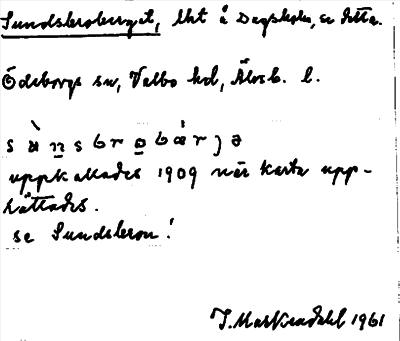 Sundsbroberget, lht å Dagsholm, se detta.
Ödeborgs sn, Valbo hd, Älvsb. l.
s ù n s b r o b æ r j ə
uppkallades 1909 när karta upp-
rättades.
se Sundsbron!
J. Markendahl 1961